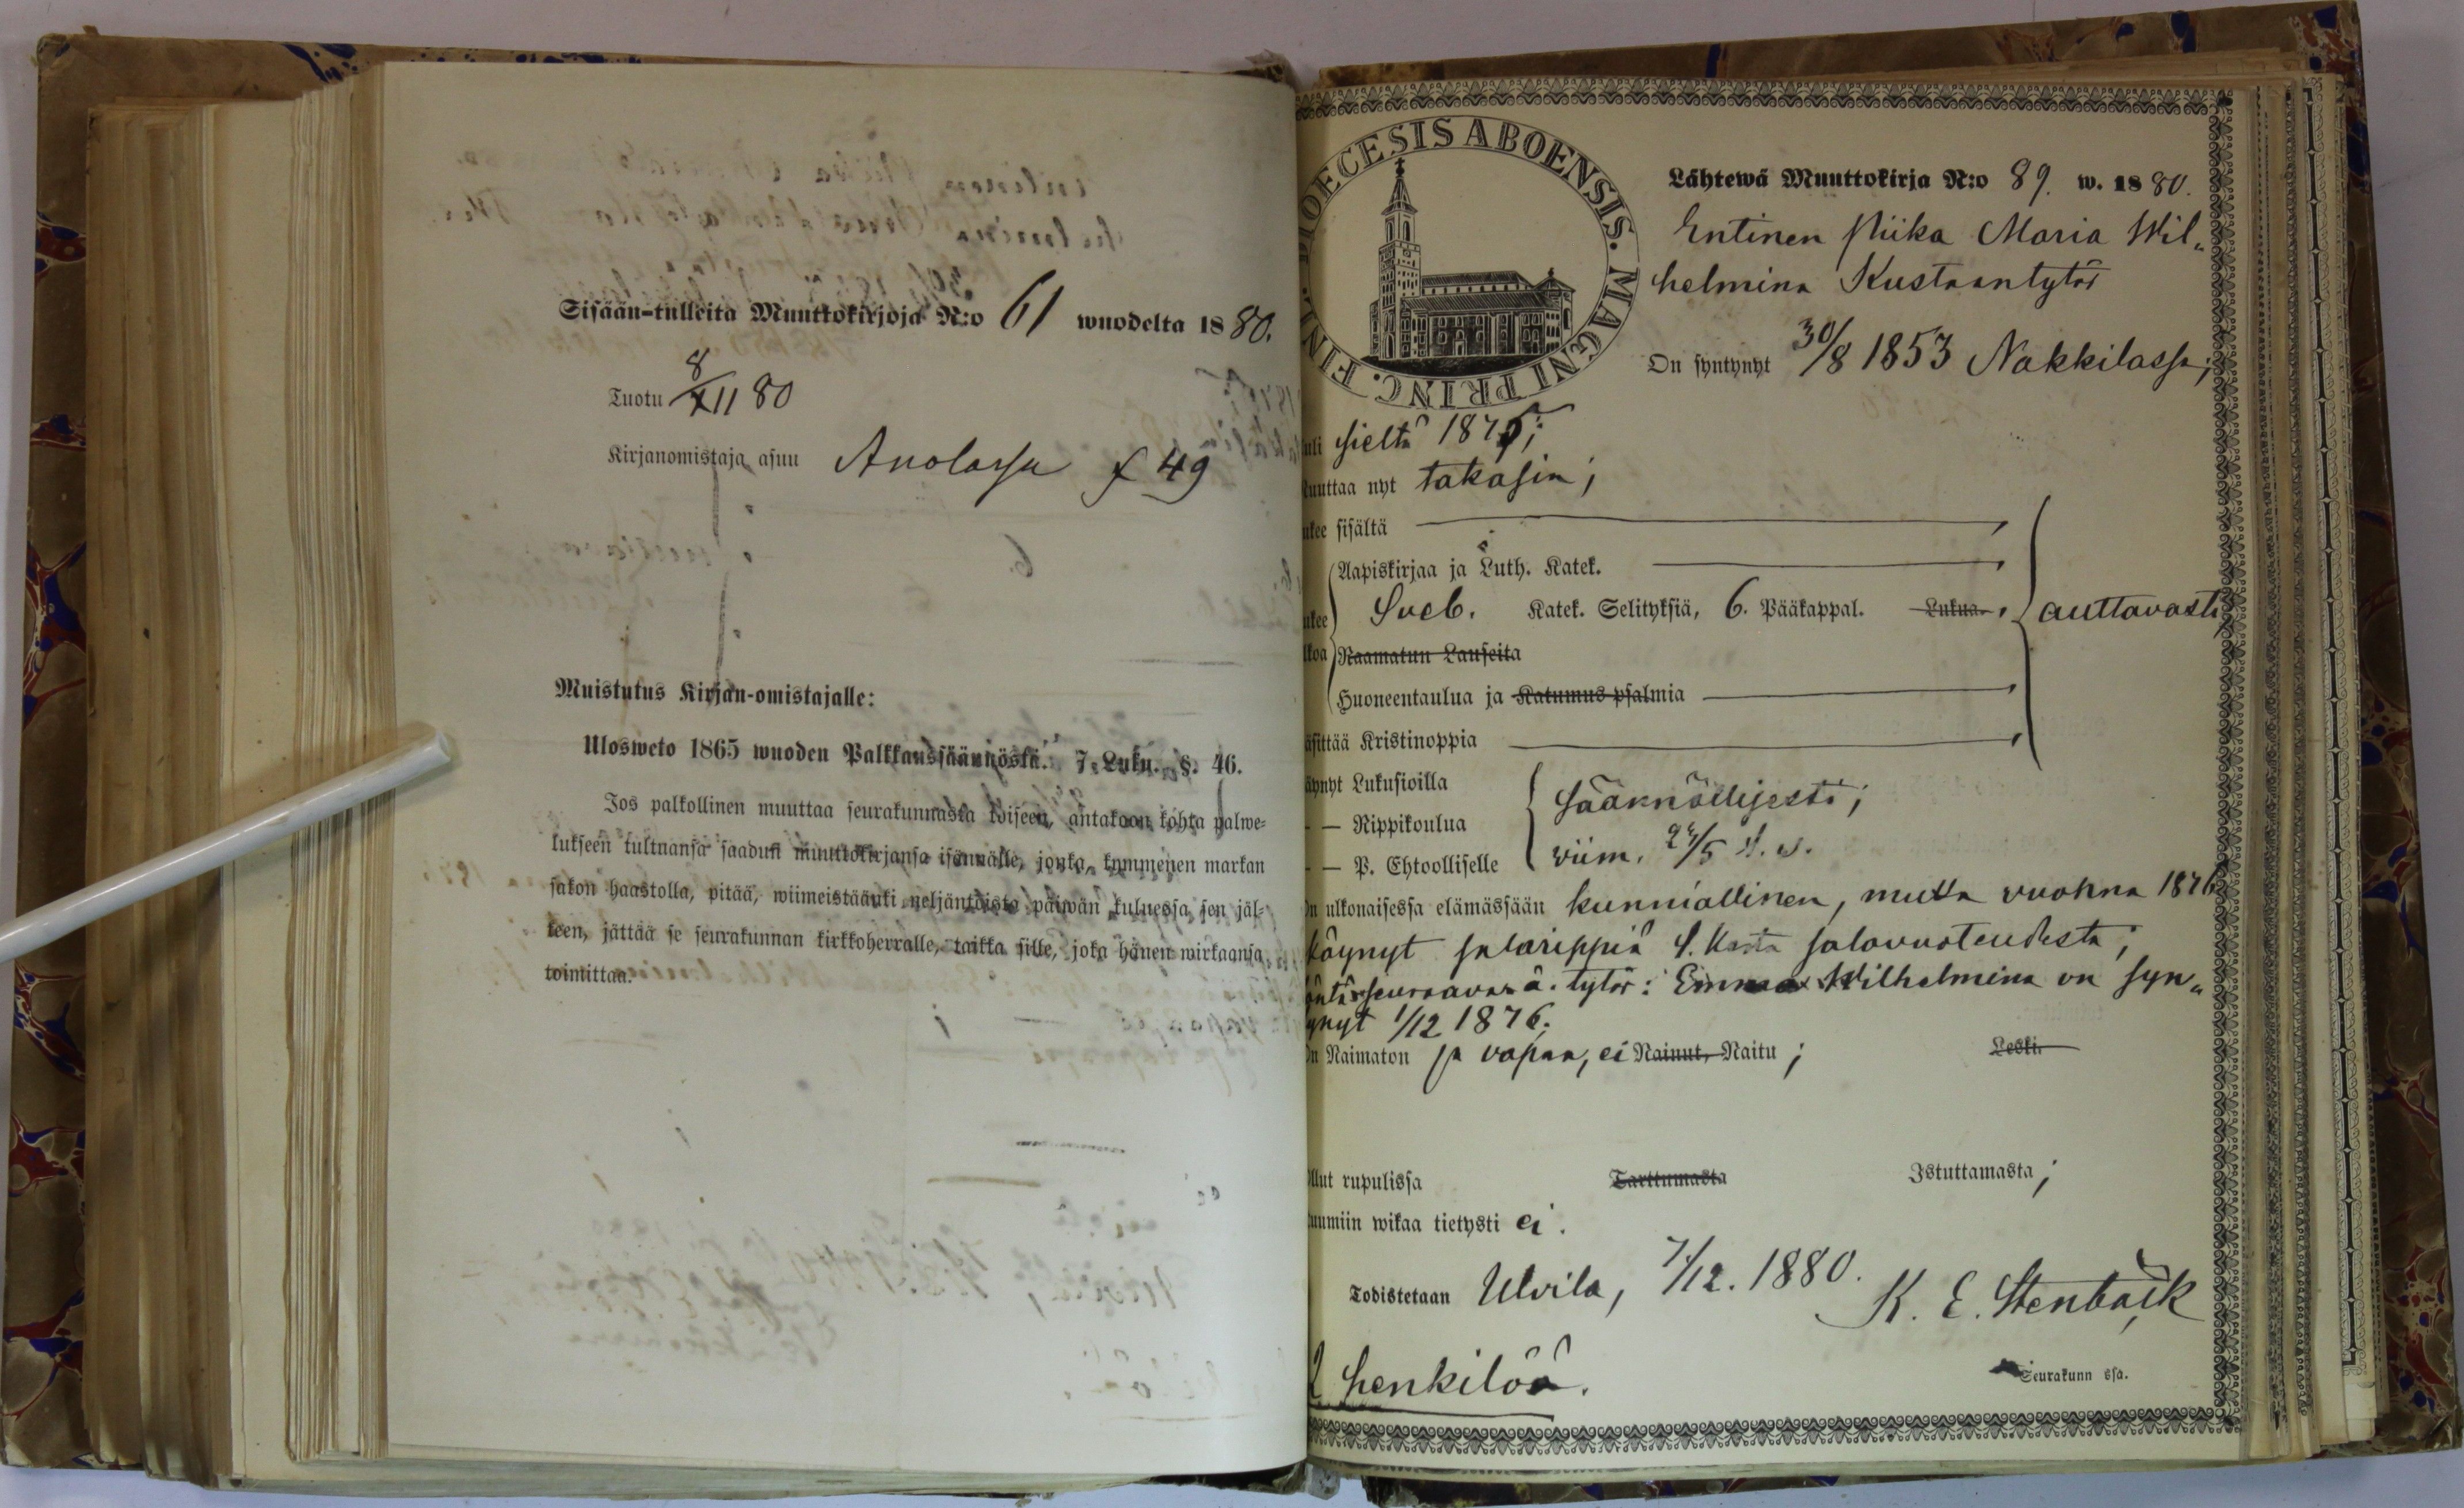 Sisään-tulleita Muuttokirjoja N:o 61 wuodelta 1880.
Tuotu 8/11 80
Kirjanomistaja asuu Anolassa f 49
Muistutus Kirjan-omistajalle:
Ulosweto 1865 wuoden Palkkaussäännöstä. 7. Luku. §. 46.
Jos palkollinen muuttaa seurakunnasta toiseen, antakoon kohta palwe-
lukseen tultuansa saadun muuttokirjansa isännälle, jonka, kymmenen markan
sakon haastolla, pitää, wiimeistäänki neljäntoista päiwän kuluessa sen jäl-
keen, jättää se seurakunnan kirkkoherralle, taikka sille, joka hänen wirkaansa
toimittaa.
DIOECESIS ABOENSIS. MAGNI PRINC. FINL.
Lähtewä Muuttokirja N:o 89. w. 1880.
Entinen piika Maria Wil„
helmina Kustaantytär
On syntynyt 30/8 1853 Nakkilassa;
uli sieltä 1875;
uuttaa nyt takasin;
ukee sisältä
Aapiskirjaa ja Luth. Katek.
ukee Sveb. Katek. Selityksiä, 6. Pääkappal. Lukua. auttavasti
lkoa Raamatun Lauseita
Huoneentaulua ja Katumus psalmia
äsittää Kristinoppia
äynyt Lukusioilla säännöllisesti;
— — Rippikoulua
— — P. Ehtoolliselle viim. 24/5 s. v.
n ulkonaisessa elämässään kunniallinen, mutta vuonna 1876
käynyt salarippiä 1. kerta salavuoteudesta;
äntä seuraava ä. tytär: Emma Wilhelmina on syn„
ynyt 1/12 1876;
n Naimaton ja vapaa, ei Nainut, Naitu; Leski
llut rupulissa Tarttumasta Istuttamasta;
uumiin wikaa tietysti ei.
Todistetaan Ulvila, 7/12. 1880. K. E. Stenbäck
Seurakunn ssa.
2 henkilöä.